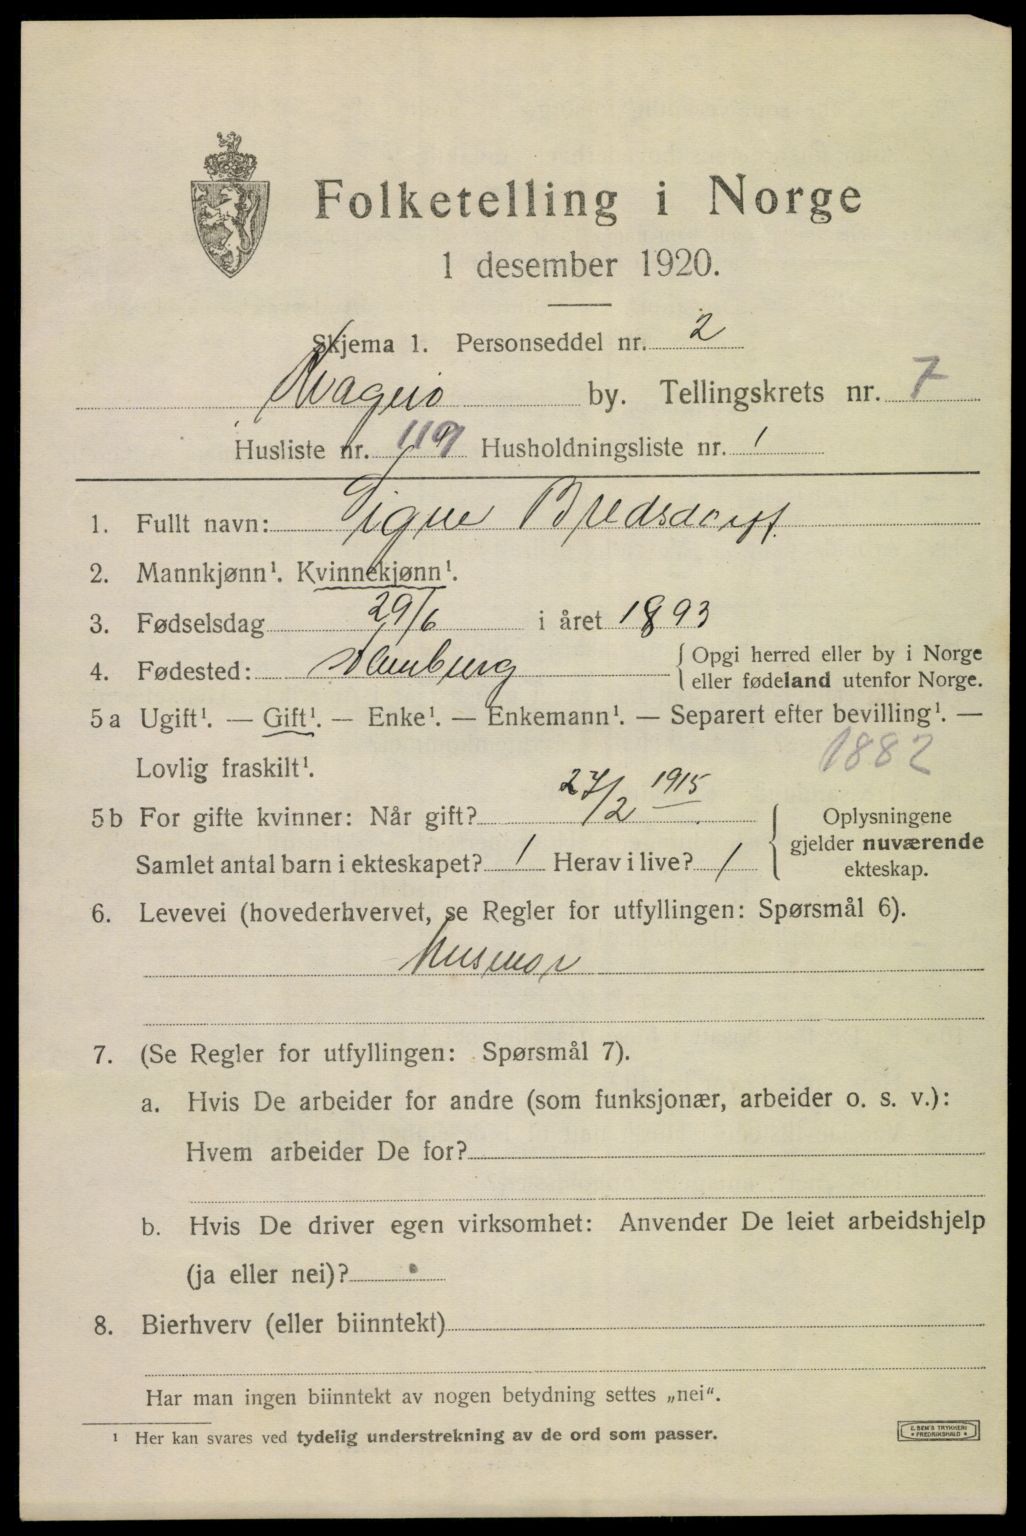 Folketelling i Norge
1 desember 1920.
Skjema 1. Personseddel nr. 2
Kragerø by. Tellingskrets nr. 7
Husliste nr. 119 Husholdningsliste nr. 1
1. Fullt navn: Signe Bredsdorff.
2. Mannkjønn¹. Kvinnekjønn¹.
3. Fødselsdag 29/6 i året 1893
4. Fødested: { Opgi herred eller by i Norge
eller fødeland utenfor Norge.
5a Ugift¹. — Gift¹. — Enke¹. — Enkemann¹. — Separert efter bevilling¹. —
Lovlig fraskilt¹. 1882
5b For gifte kvinner: Når gift? 27/2 1915. { Oplysningene
gjelder nuværende
ekteskap.
Samlet antal barn i ekteskapet? 1 Herav i live? 1
6. Levevei (hovederhvervet, se Regler for utfyllingen: Spørsmål 6).
Husmor
7. (Se Regler for utfyllingen: Spørsmål 7).
a. Hvis De arbeider for andre (som funksjonær, arbeider o. s. v.):
Hvem arbeider De for?
b. Hvis De driver egen virksomhet: Anvender De leiet arbeidshjelp
(ja eller nei)?
8. Bierhverv (eller biinntekt)
Har man ingen biinntekt av nogen betydning settes „nei".
¹ Her kan svares ved tydelig understrekning av de ord som passer.
E. SEM'S TRYKKERI
• FREDRIKSHALD •